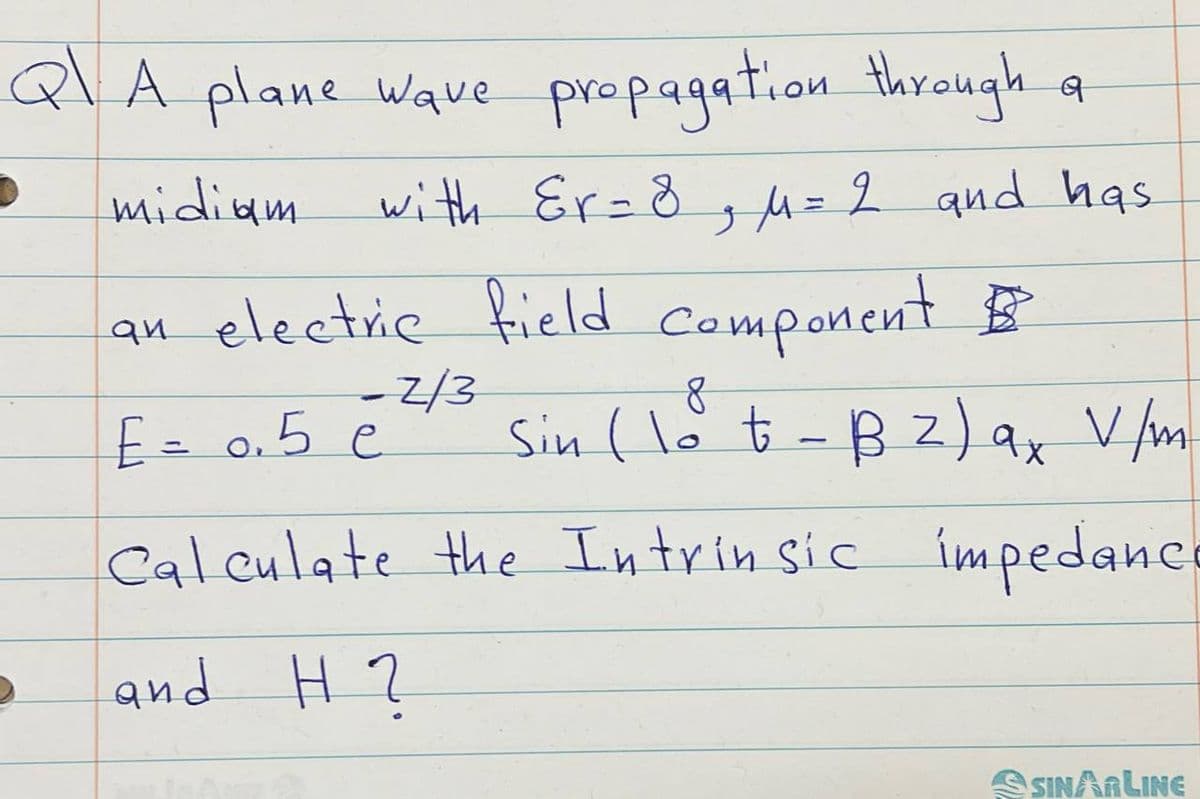 Q\ A plane wave propagation through a
midiam with Er=8, μ=2 and has
an electric field component
E = 0.5 e^-z/3 Sin (10^8 t - β z) ax V/m
Calculate the Intrinsic impedance
and H ?
SINARLINE